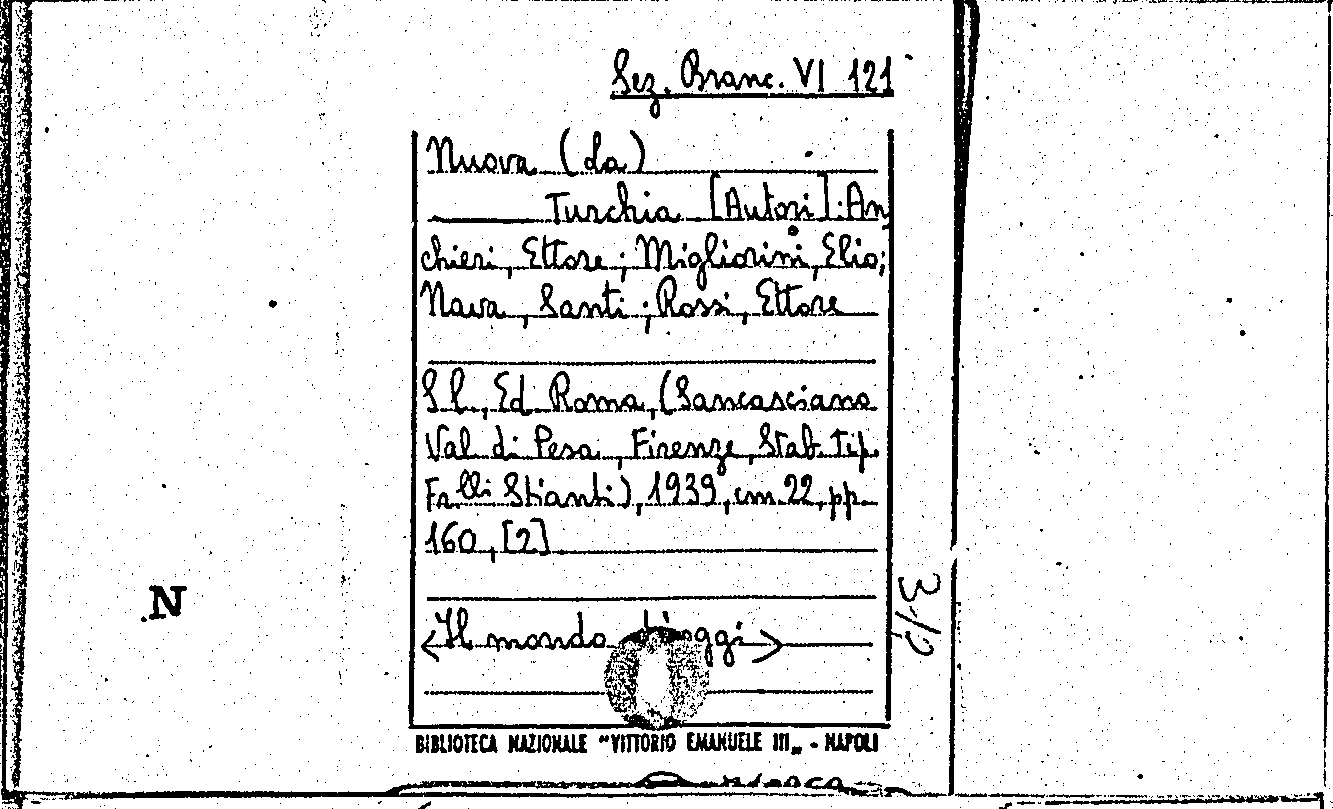 Sez. Branc. VI 121
Nuova (La)
Turchia [Autori]: An
chieri, Ettore; Migliorini, Elio;
Nava, Santi; Rossi, Ettore
S.l., Ed. Roma, (Sancasciano
Val di Pesa, Firenze, Stab. Tip.
F.lli Stianti), 1939, cm. 22, pp.
160, [2]
<Il mondo d'oggi>
N
BIBLIOTECA NAZIONALE "VITTORIO EMANUELE III„ - NAPOLI